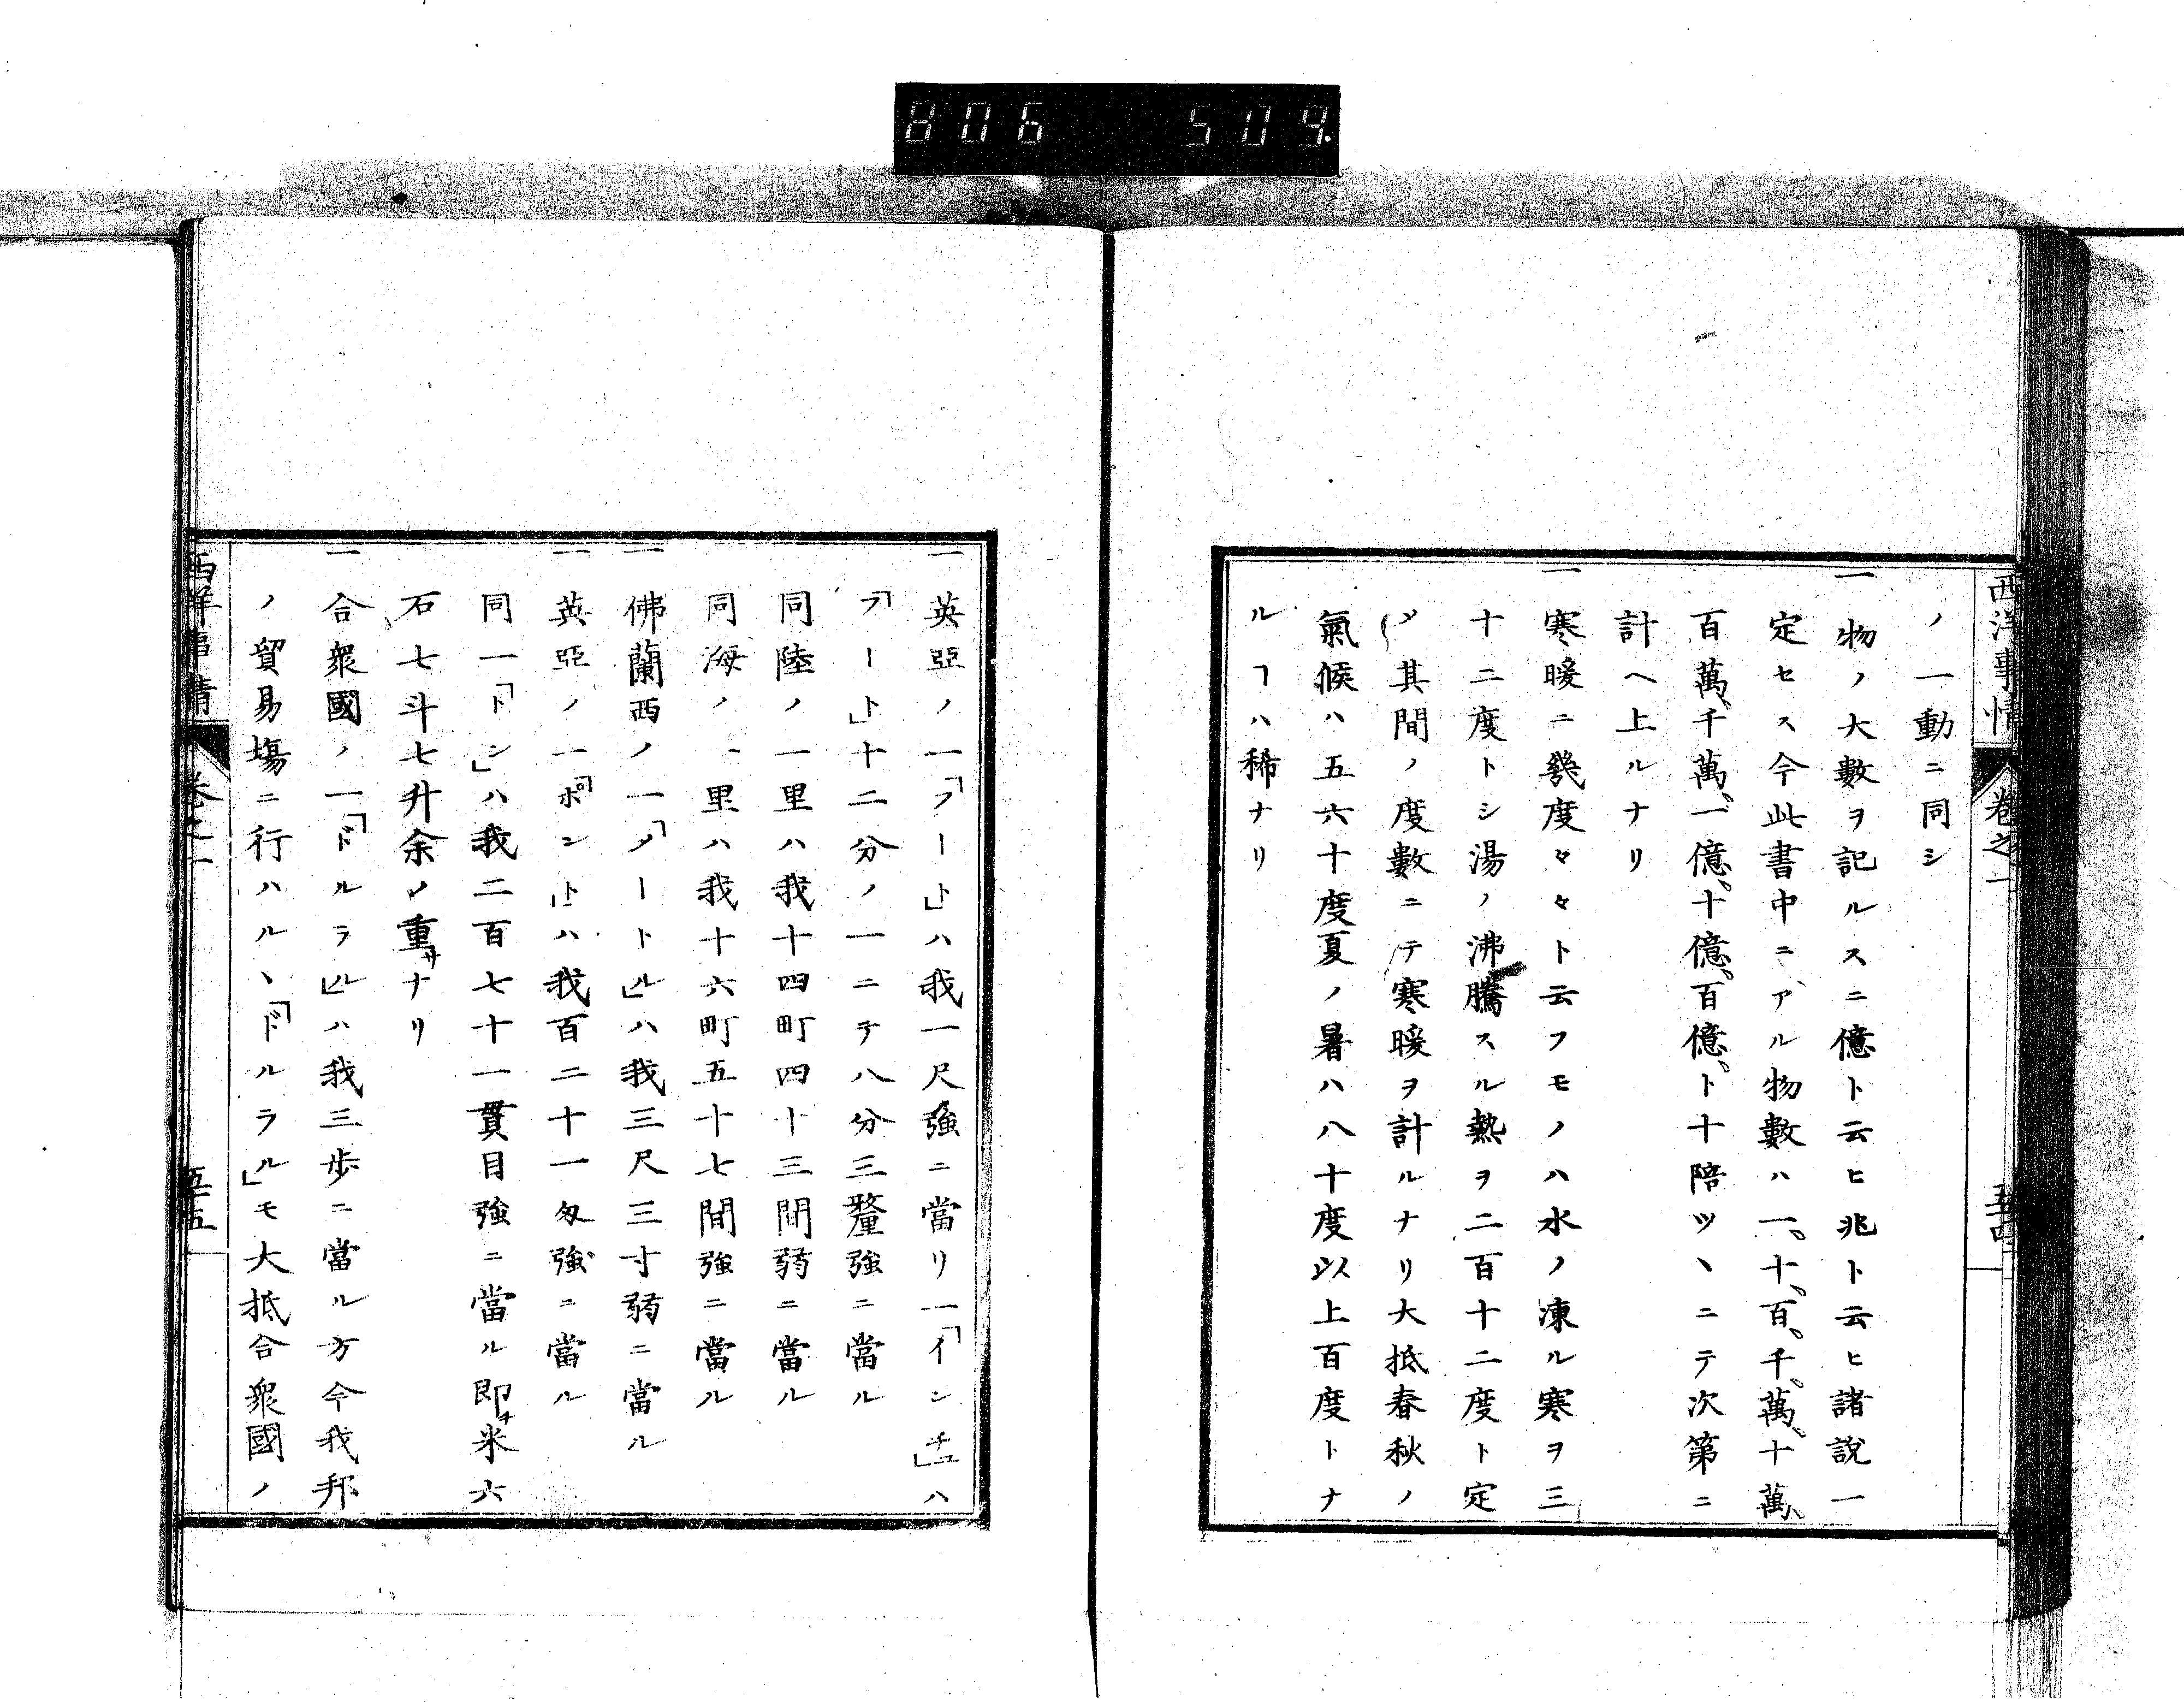 806 509.
西洋事情 卷之一 五十四
ノ一動ニ同シ
一物ノ大數ヲ記ルスニ億ト云ヒ兆ト云ヒ諸說一
定セス今此書中ニアル物數ハ一、十、百、千、萬、十萬、
百萬、千萬、一億、十億、百億、ト十陪ツヽニテ次第ニ
計ヘ上ルナリ
一寒暖ニ幾度々々ト云フモノハ水ノ凍ル寒ヲ三
十二度トシ湯ノ沸騰スル熱ヲ二百十二度ト定
メ其間ノ度數ニテ寒暖ヲ計ルナリ大抵春秋ノ
氣候ハ五六十度夏ノ暑ハ八十度以上百度トナ
ルヿハ稀ナリ
一英亞ノ一「フート」ハ我一尺強ニ當リ一「インチュ」ハ
「フート」十二分ノ一ニテ八分三釐強ニ當ル
同陸ノ一里ハ我十四町四十三間弱ニ當ル
同海ノ一里ハ我十六町五十七間強ニ當ル
一佛蘭西ノ一「メートル」ハ我三尺三寸弱ニ當ル
一英亞ノ一「ポンド」ハ我百二十一匁強ニ當ル
同一「トン」ハ我二百七十一貫目強ニ當ル即チ米六
石七斗七升余ノ重サナリ
一合衆國ノ一「ドルラル」ハ我三歩ニ當ル方今我邦
ノ貿易塲ニ行ハルヽ「ドルラル」モ大抵合衆國ノ
西洋事情 卷之一 五十五